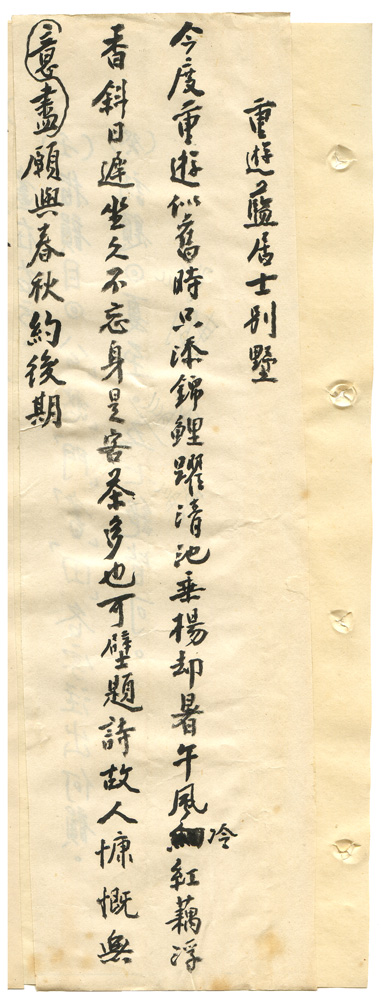 重遊藍居士別墅
今度重遊似舊時只添錦鯉躍清池垂楊却暑午風冷紅藕浮
香斜日遲坐久不忘身是客茶多也可壁題詩故人慷慨無
意盡願與春秋約後期